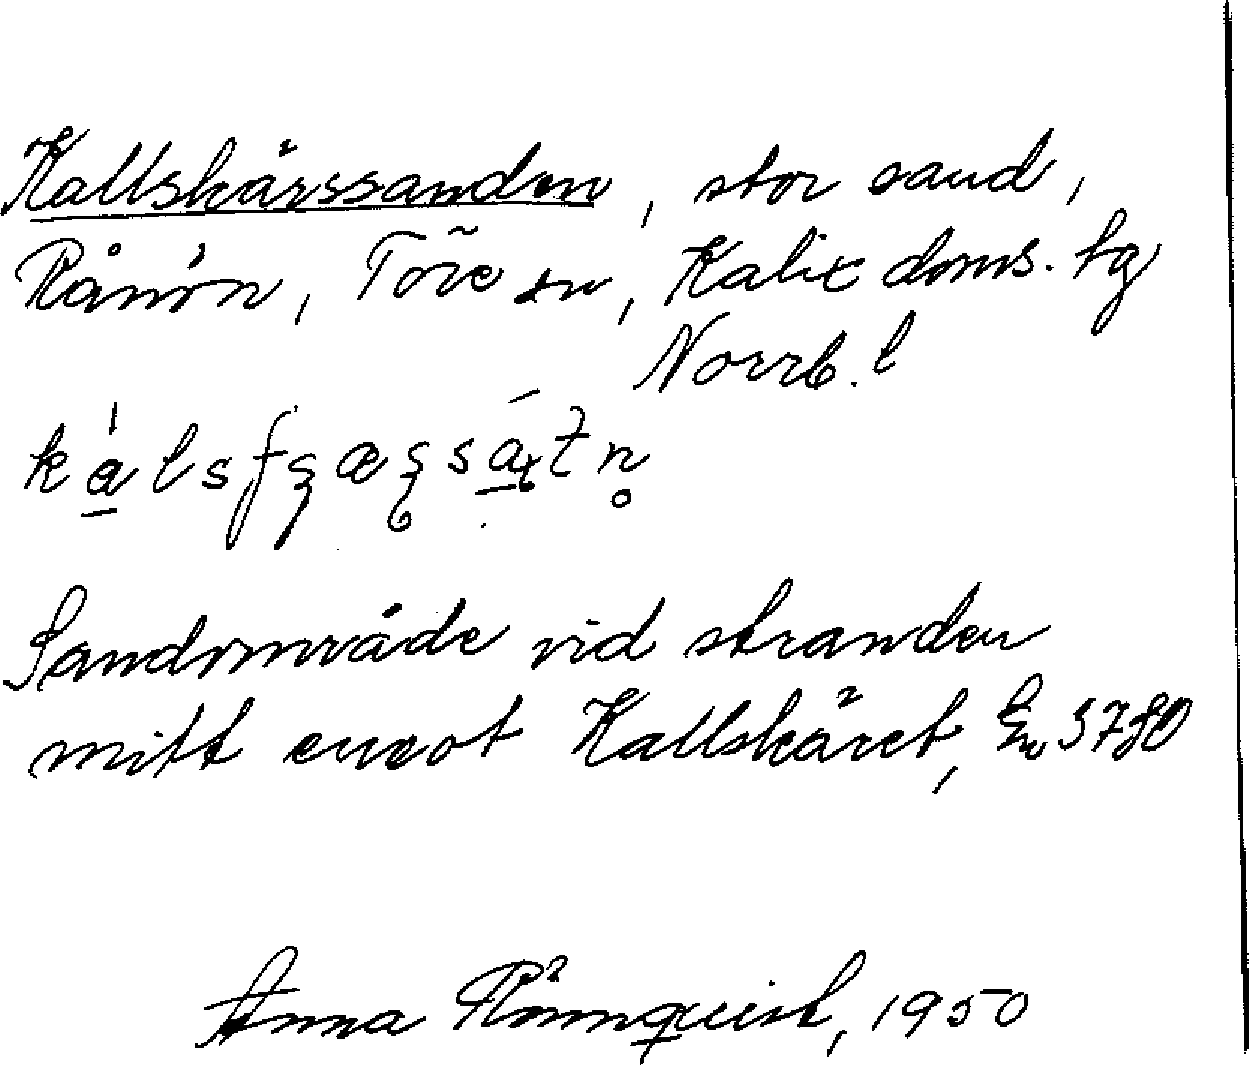 Kallskärssanden, stor sand,
Rånön, Töre sn, Kalix doms. tg
Norrb. l
Sandområde vid stranden
mitt emot Kallskäret, 3780
Anna Rönnquist, 1950